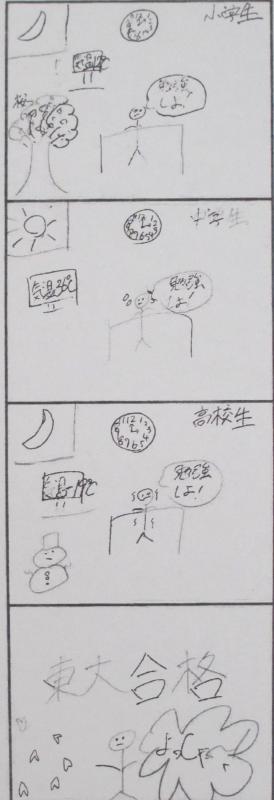 小学生
桜
勉強
しよ!
中学生
気温36℃
勉強
しよ!
高校生
11 12 1
勉強
しよ!
東大合格
よっしゃー